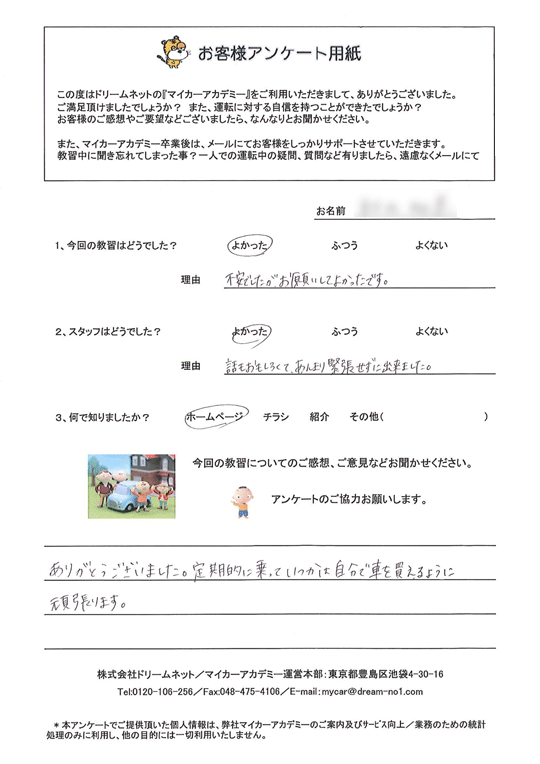 お客様アンケート用紙
この度はドリームネットの『マイカーアカデミー』をご利用いただきまして、ありがとうございました。
ご満足頂けましたでしょうか？ また、運転に対する自信を持つことができたでしょうか？
お客様のご感想やご要望などございましたら、なんなりとお聞かせください。
また、マイカーアカデミー卒業後は、メールにてお客様をしっかりサポートさせていただきます。
教習中に聞き忘れてしまった事？一人での運転中の疑問、質問など有りましたら、遠慮なくメールにて
お名前
1、今回の教習はどうでした？ よかった ふつう よくない
理由 不安でしたが、お願いしてよかったです。
2、スタッフはどうでした？ よかった ふつう よくない
理由 話もおもしろくて、あんまり緊張せずに出来ました。
3、何で知りましたか？ ホームページ チラシ 紹介 その他( )
今回の教習についてのご感想、ご意見などお聞かせください。
アンケートのご協力お願いします。
ありがとうございました。定期的に乗っていつかは自分で車を買えるように
頑張ります。
株式会社ドリームネット／マイカーアカデミー運営本部：東京都豊島区池袋4-30-16
Tel:0120-106-256／Fax:048-475-4106／E-mail:mycar@dream-no1.com
＊本アンケートでご提供頂いた個人情報は、弊社マイカーアカデミーのご案内及びサービス向上／業務のための統計
処理のみに利用し、他の目的には一切利用いたしません。